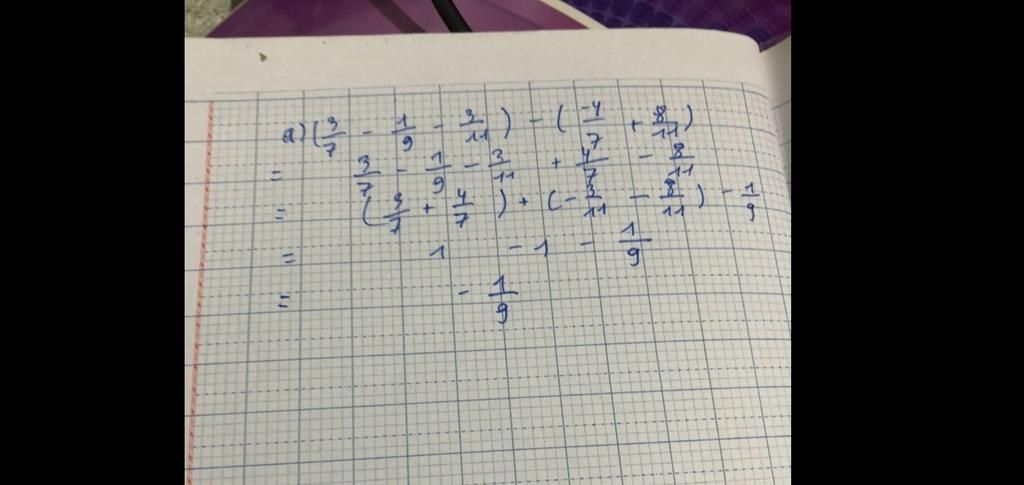 a) (3/7 - 1/9 - 3/11) - (-4/7 + 8/11)
= 3/7 - 1/9 - 3/11 + 4/7 - 8/11
= (3/7 + 4/7) + (-3/11 - 8/11) - 1/9
= 1 - 1 - 1/9
= - 1/9